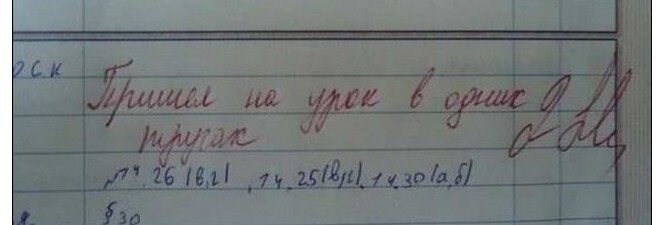 Пришел на урок в одних
трусах
14.26 (в,г), 14.25(в,г), 14.30(а,б)
§30